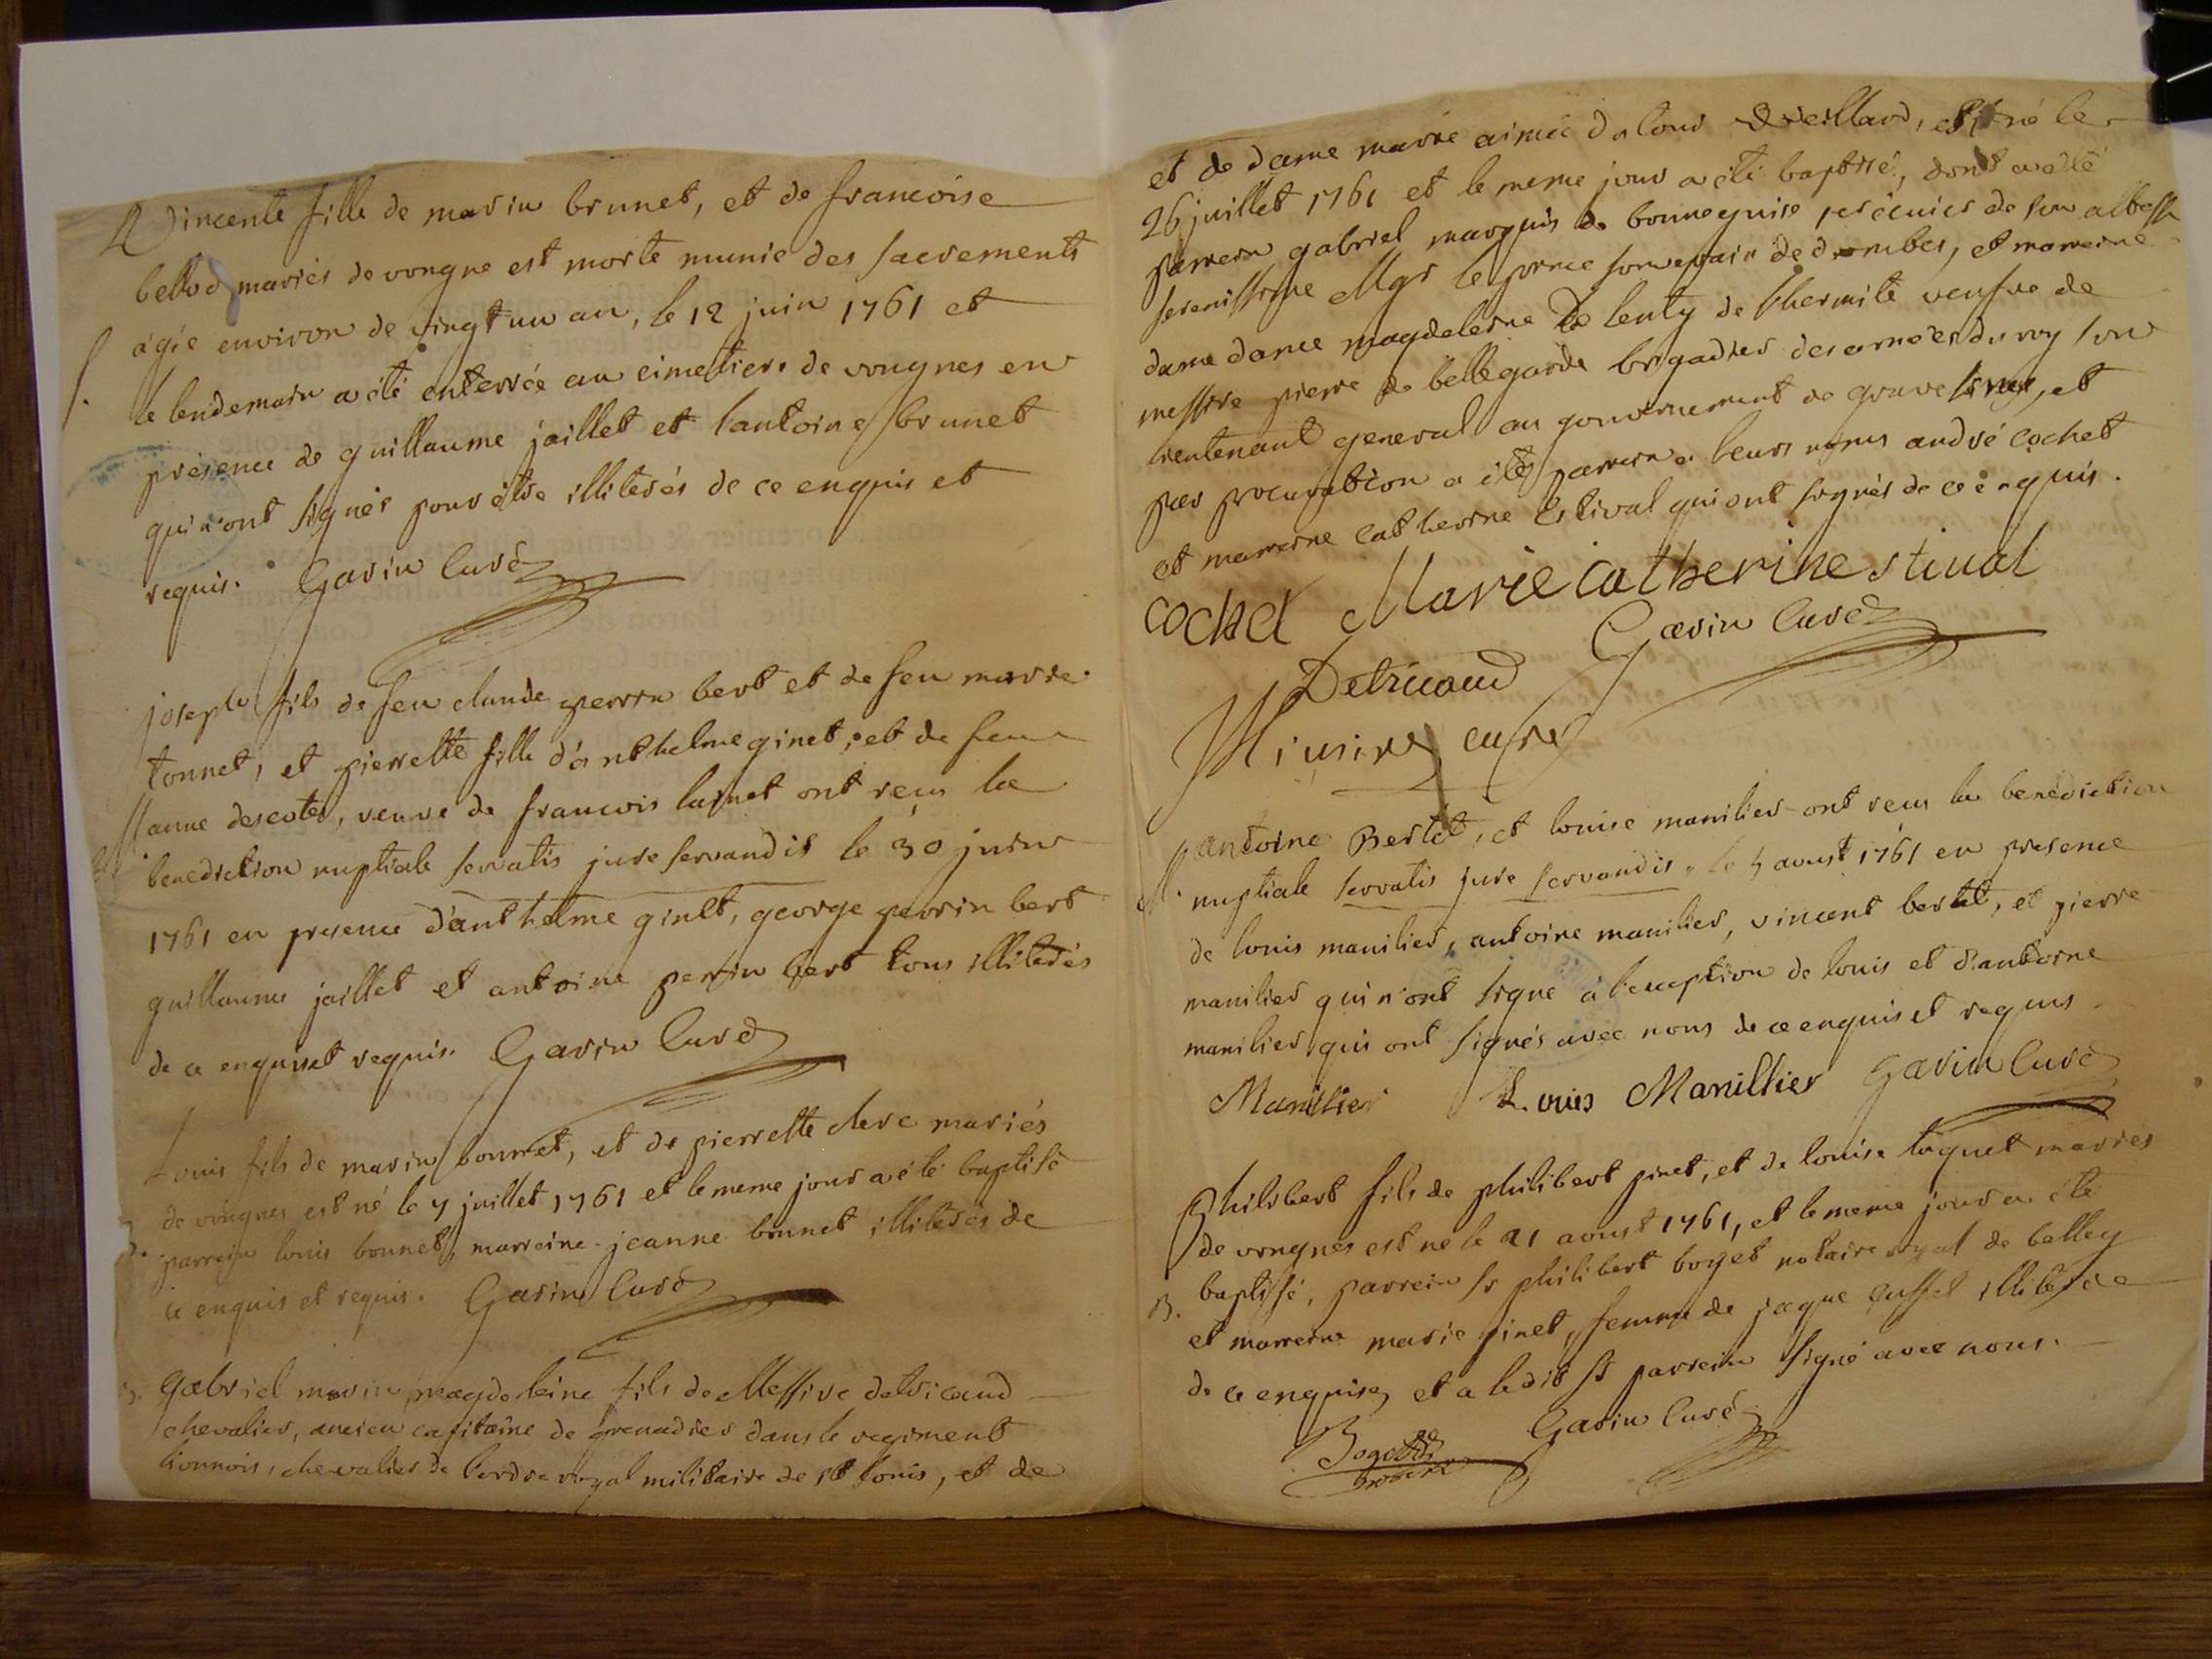 Vincente fille de marin brunet, et de francoise
bellod mariés de vongne est morte munie des sacrements
S. agée environ de vingt un an, le 12 juin 1761 et
le lendemain a été enterrée au cimetiere de vongnes en
présence de guillaume jaillet et antoine brunet
qui n'ont signés pour être illiterés de ce enquis et
requis. Gavin Curé
joseph fils de feu claude perrin bert et de feu marie
tonnet, et pierrette fille d'anthelme ginet, et de feue
M anne descotes, veuve de francois luquet ont reçu la
benediction nuptiale servatis jure servandis le 30 juin
1761 en presence d'anthelme ginet, george perrin bert
guillaume jaillet et antoine perrin bert tous illiterés
de ce enquis et requis. Gavin Curé
Louis fils de marin bonnet, et de pierrette clerc mariés
de vongnes est né le 7 juillet 1761 et le meme jour a été baptisé
B. parrein louis bonnet, marreine jeanne brunet illiterés de
ce enquis et requis. Gavin Curé
B. Gabriel marin magdeleine fils de Messire detricaud
chevalier, ancien capitaine de grenadier dans le regiment
lionnois, chevalier de l'ordre royal militaire de st louis, et de
et de dame marie aimée veillard, est né le
26 juillet 1761 et le meme jour a été baptisé, dont a été
parrein gabriel marquis de bonneguise de son altesse
serenissime Mgr le prince souverain de dombes, et marreine
dame dame magdeleine de lenty de lhermite veufve de
messire pierre de bellegarde brigadier des armées du roy son
lieutenant general au gouvernement de gravelines, et
par procuration a été parrein a leurs noms andré cochet
et marreine catherine estival qui ont signés de ce enquis.
cochet Marie Catherine stival
Detricaud Gavin Curé
curé
antoine Bertet, et louise manilier ont reçu la benediction
M. nuptiale servatis jure servandis le 4 aoust 1761 en presence
de louis manilier, antoine manilier, vincent bertet, et pierre
manilier qui n'ont signé a l'exception de louis et d'antoine
manilier qui ont signés avec nous de ce enquis et requis
Manilier Louis Manillier Gavin Curé
Philibert fils de philibert pinet, et de louise luquet mariés
de vongnes est né le 21 aoust 1761, et le meme jour a été
B. baptisé, parrein sr philibert boget notaire royal de belley
et marreine marie pinet, femme de jaque illiterée
de ce enquise, et a ledit sr parrein signé avec nous.
Boget Gavin Curé